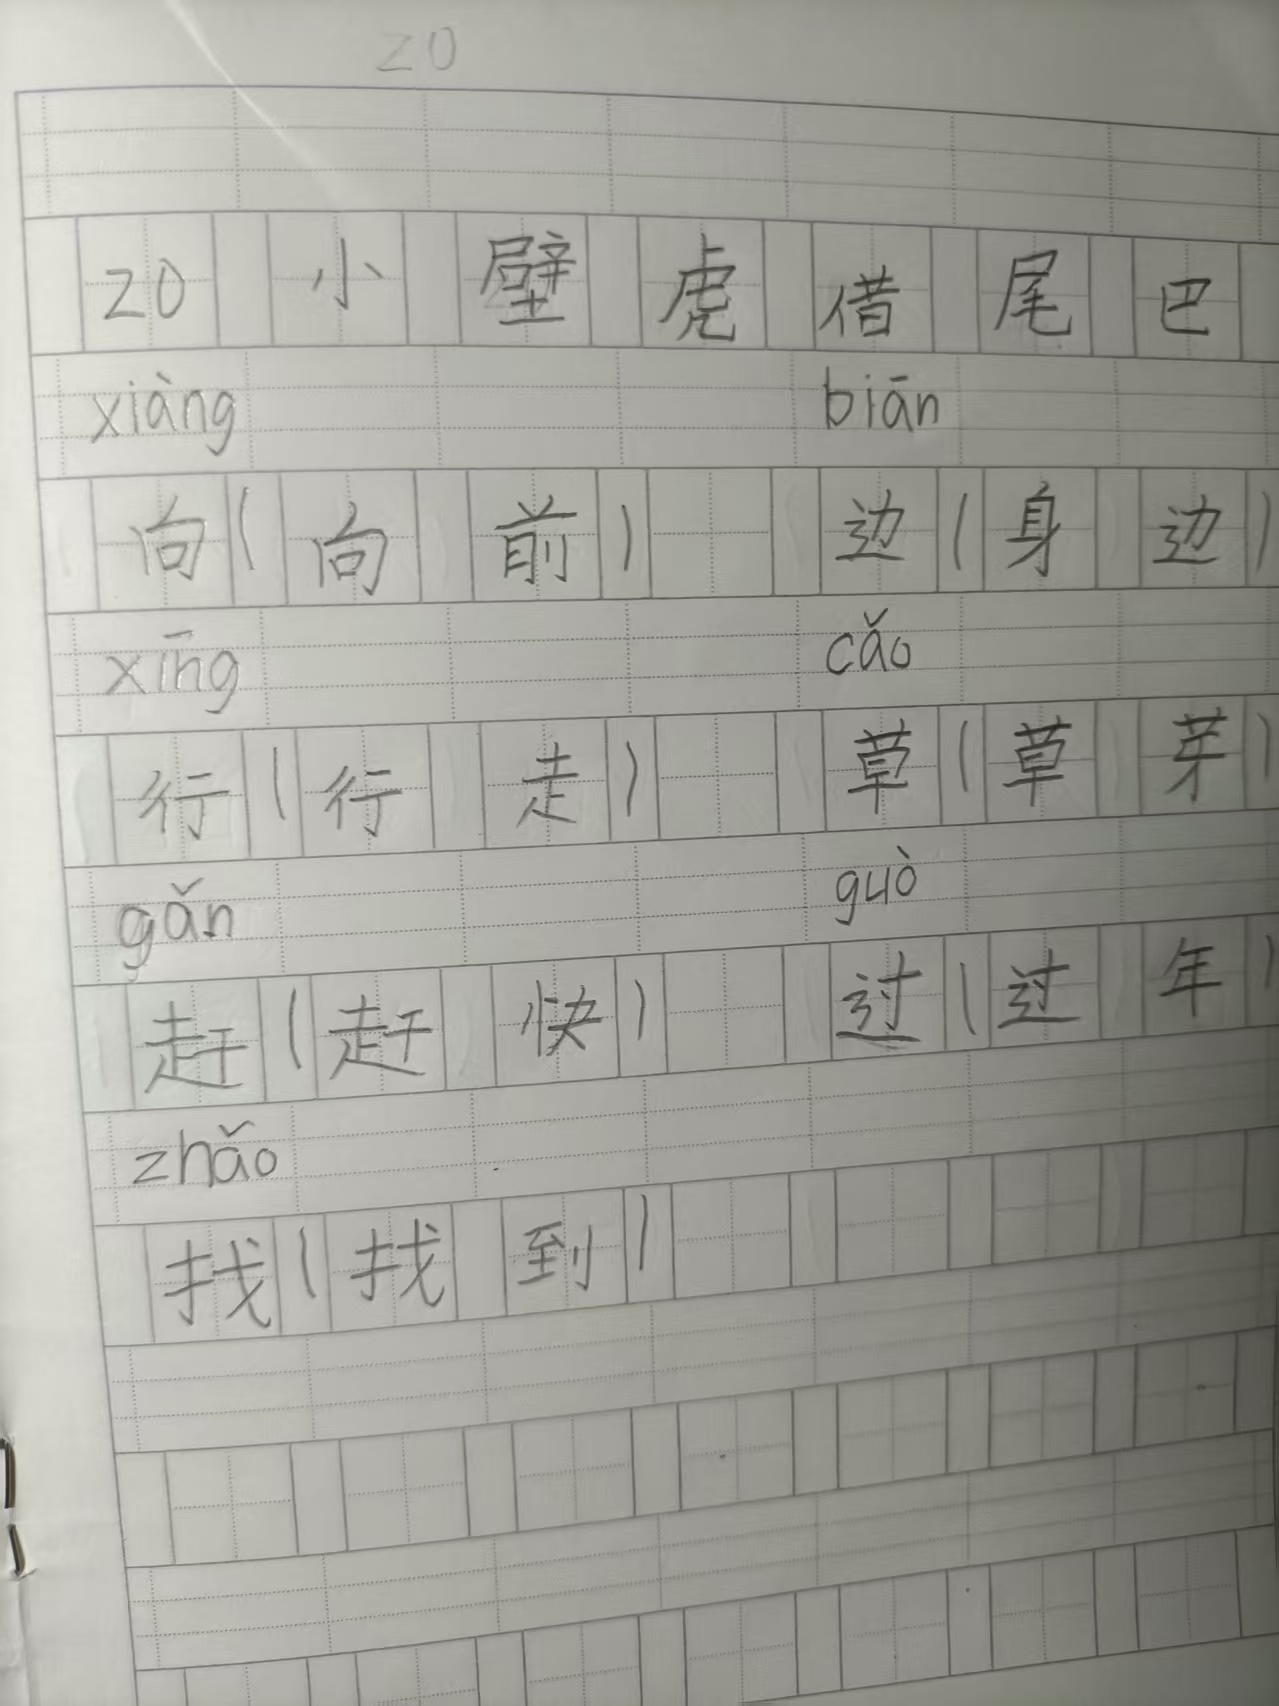 20
20 小壁虎借尾巴
xiàng biān
向(向前) 边(身边)
xīng cǎo
行(行走) 草(草芽)
gǎn guò
赶(赶快) 过(过年)
zhǎo
找(找到)